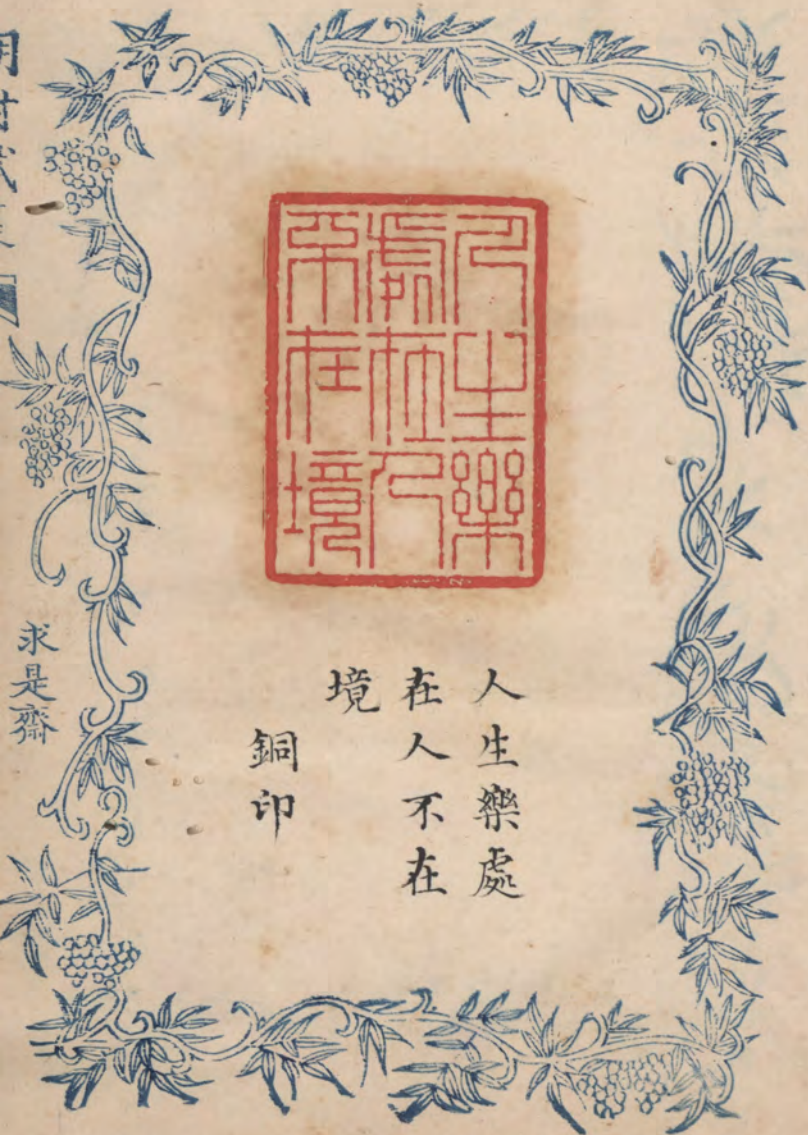 人生樂
處在人
不在境
人生樂處
在人不在
境
銅印
求是齋